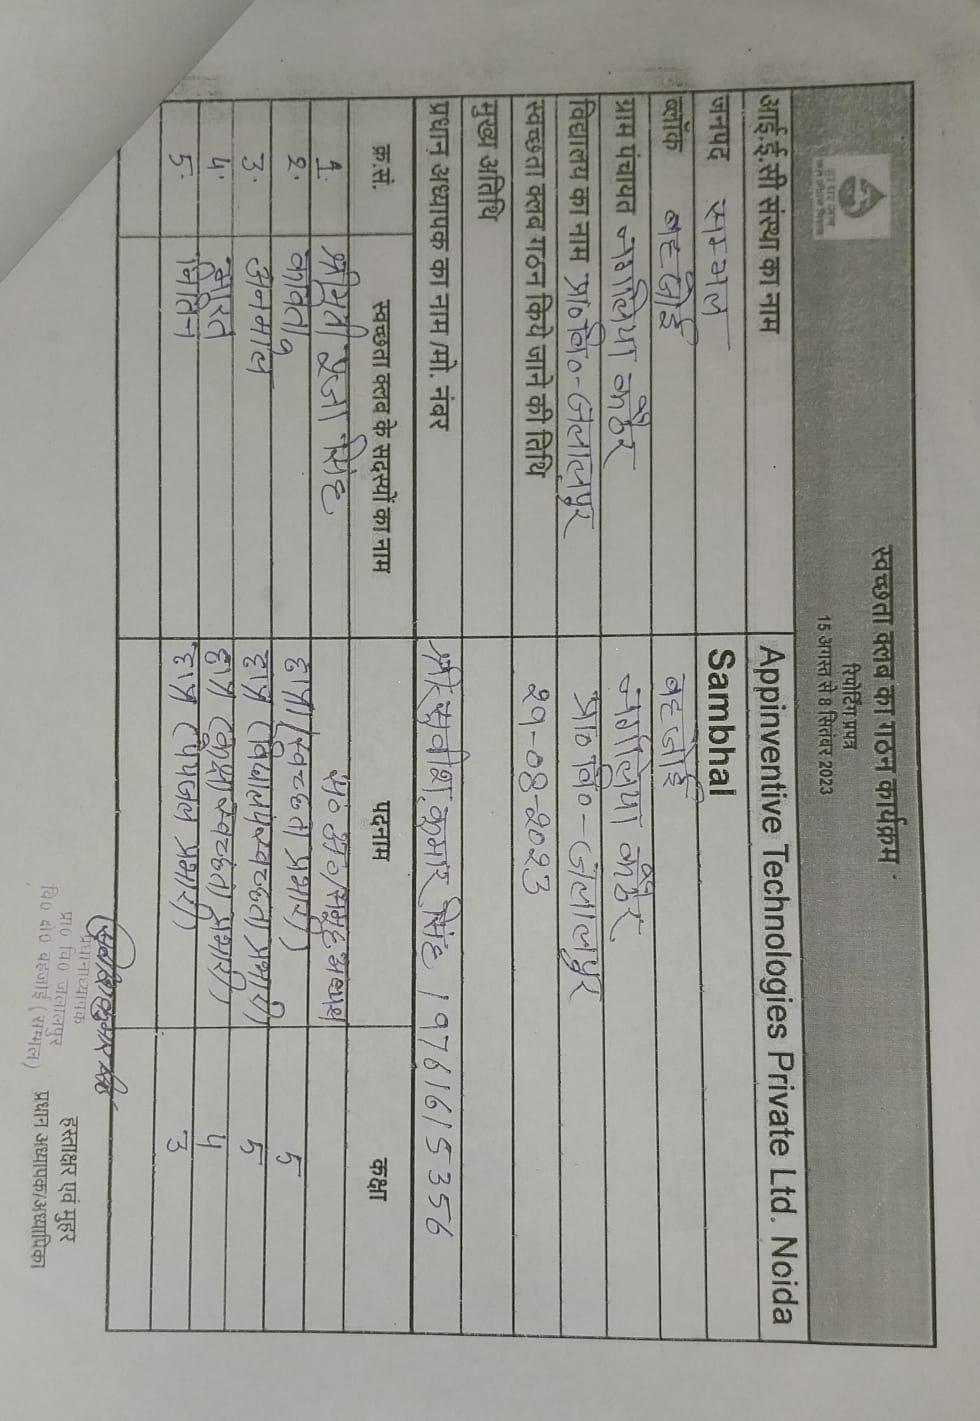 स्वच्छता क्लब का गठन कार्यक्रम
रिपोर्टिंग प्रपत्र
15 अगस्त से 8 सितंबर 2023
आई.ई.सी संस्था का नाम Appinventive Technologies Private Ltd. Noida
जनपद सम्भल Sambhal
ब्लॉक बहजोई बहजोई
ग्राम पंचायत नगलिया कठेर नगलिया कठेर
विद्यालय का नाम प्रा० वि०-जलालपुर प्रा० वि०-जलालपुर
स्वच्छता क्लब गठन किये जाने की तिथि 29-08-2023
मुख्य अतिथि
प्रधान अध्यापक का नाम /मो. नंबर श्री सर्वेश कुमार सिंह / 9761615356
क्र.सं. स्वच्छता क्लब के सदस्यों का नाम पदनाम कक्षा
1. श्रीमती प्रज्ञा सिंह स० अ०/समूह अध्यक्ष
2. कविता छात्रा (स्वच्छता प्रभारी) 5
3. अनमोल छात्र (विद्यालय स्वच्छता प्रभारी) 5
4. भारत छात्र (कक्षा स्वच्छता प्रभारी) 4
5. नितिन छात्र (पेयजल प्रभारी) 3
प्रधानाध्यापक
प्रा० वि० जलालपुर
वि० क्षे० बहजोई (सम्भल)
हस्ताक्षर एवं मुहर
प्रधान अध्यापक/अध्यापिका